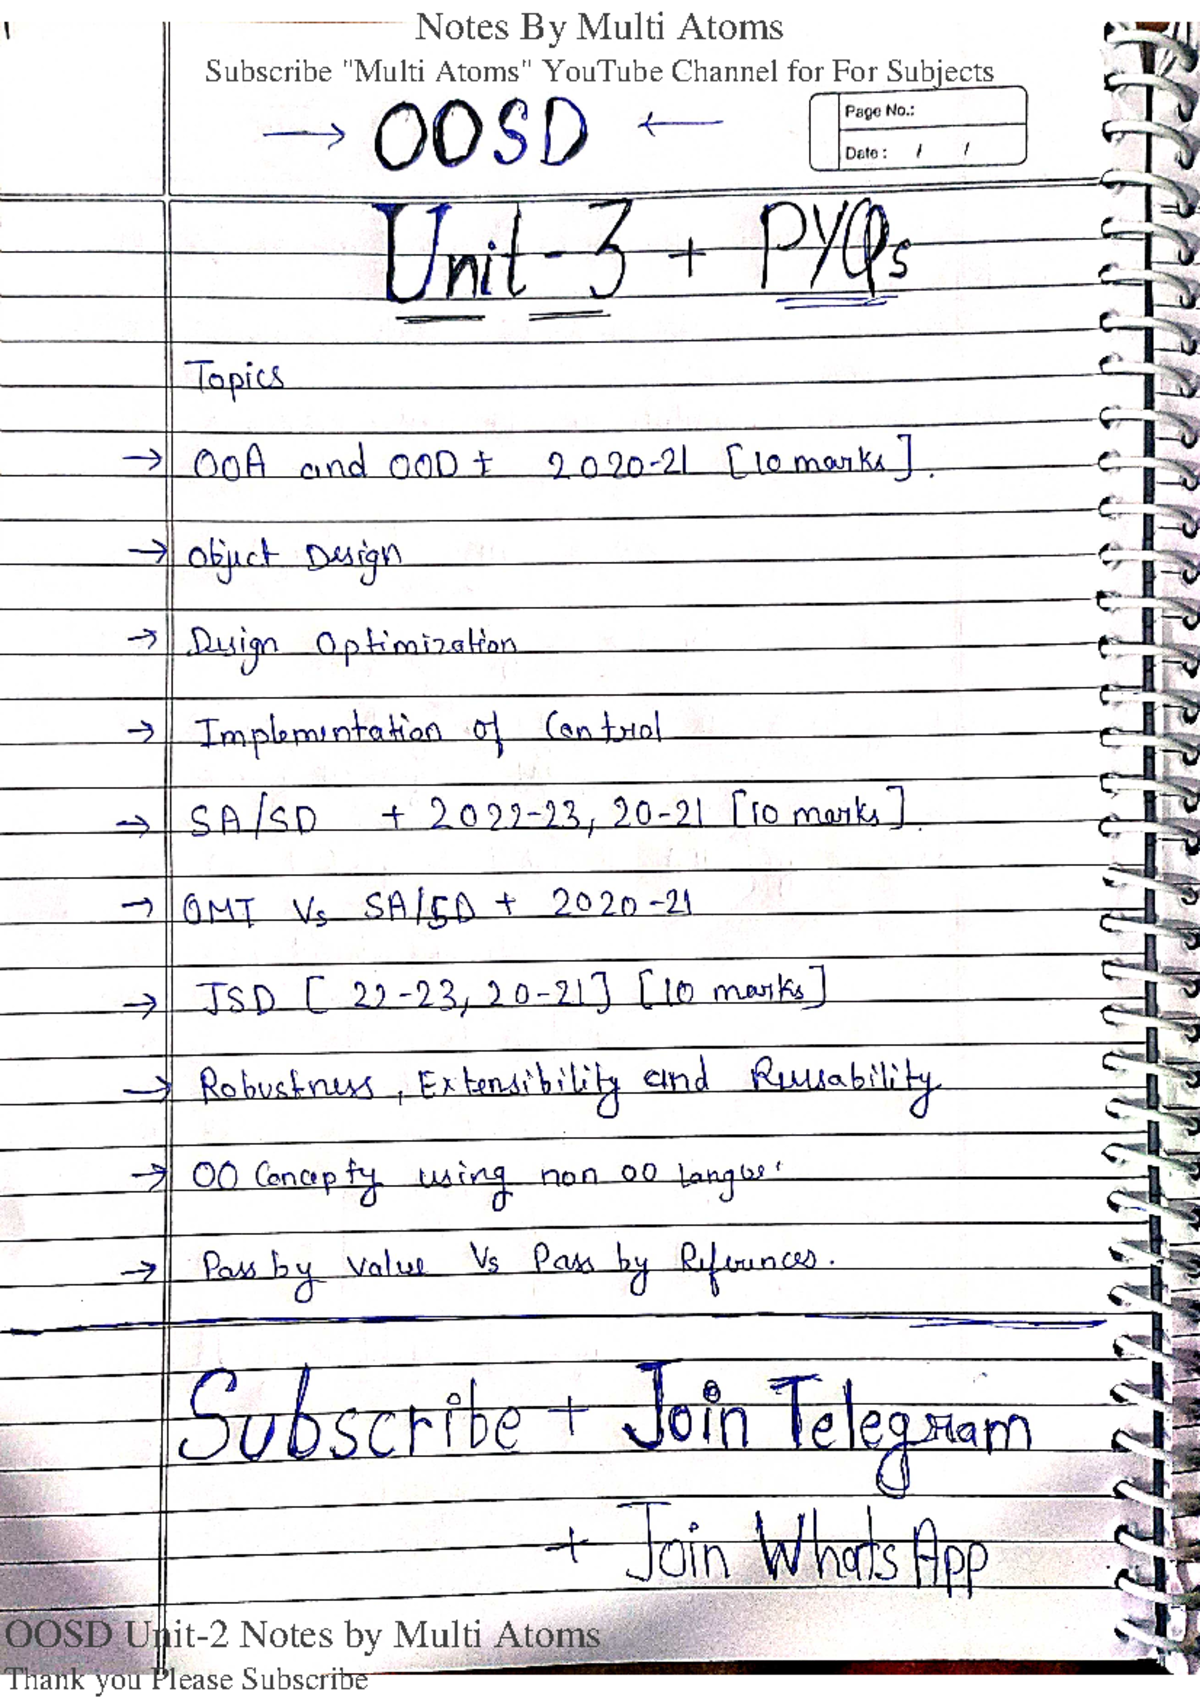 Notes By Multi Atoms
Subscribe "Multi Atoms" YouTube Channel for For Subjects
→ OOSD ←
Page No.:
Date : / /
Unit-3 + PYQs
Topics
→ OOA and OOD + 2020-21 [10 marks].
→ Object Design
→ Design Optimization
→ Implementation of Control
→ SA/SD + 2022-23, 20-21 [10 marks].
→ OMT Vs SA/SD + 2020-21
→ JSD [ 22-23, 20-21] [10 marks]
→ Robustness, Extensibility and Reusability
→ OO Concepty using non OO
→ Pass by Value Vs Pass by References.
Subscribe + Join Telegram
+ Join WhatsApp
OOSD Unit-2 Notes by Multi Atoms
Thank you Please Subscribe